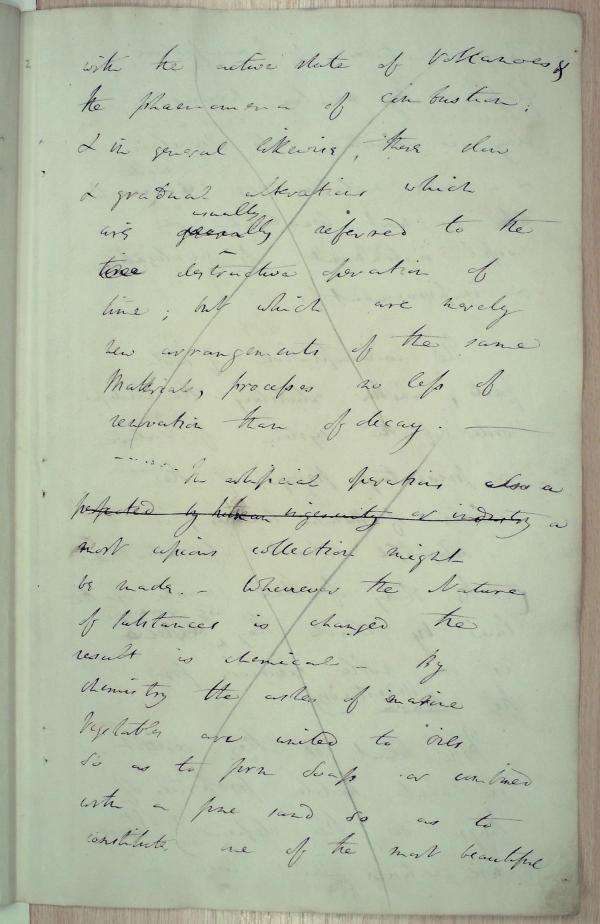 with the active state of Volcanoes &
the phaenomena of combustion;
& in general likewise, those slow
& gradual alterations which
are generally usually referred to the
time destructive operation of
time; but which are merely
new arrangements of the same
Materials, processes no less of
renovation than of decay. —
------ In artificial operations also a
perfected by human ingenuity or industry a
most copious collection might
be made. – Wherever the Nature
of substances is changed the
result is chemical – By
chemistry the ashes of marine
Vegetables are united to oils
so as to form Soaps or combined
with a fine sand so as to
constitute one of the most beautiful